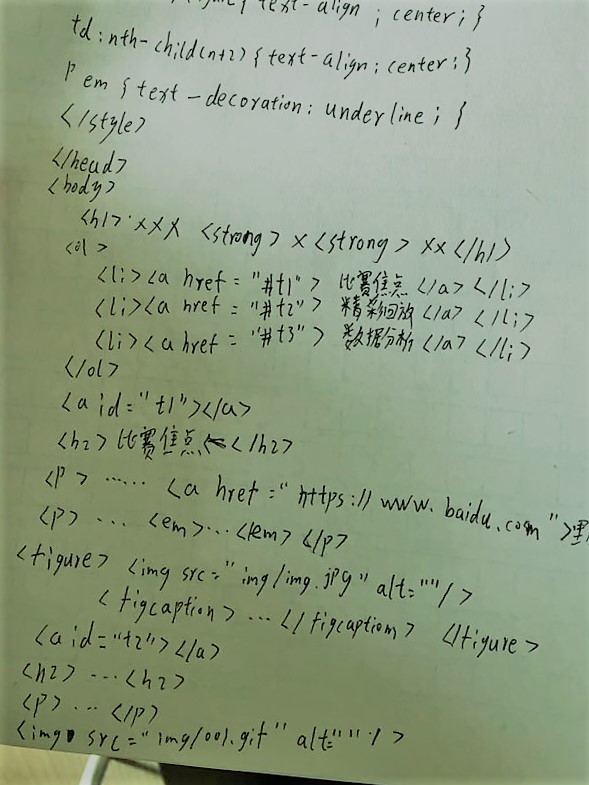 { text-align ; center ; }
td : nth-child(n+2) { text-align ; center ; }
p em { text-decoration : underline ; }
</style>
</head>
<body>
<h1> xxx <strong> x <strong> xx </h1>
<ol>
<li><a href = "#t1" > 比赛焦点 </a> </li>
<li><a href = "#t2" > 精彩回放 </a> </li>
<li><a href = "#t3" > 数据分析 </a> </li>
</ol>
<a id="t1"></a>
<h2> 比赛焦点 </h2>
<p> ...... <a href = "https://www.baidu.com">
<p> ... <em>...</em> </p>
<figure> <img src="img/img.jpg" alt=""/>
<figcaption> ... </figcaption> </figure>
<a id="t2"></a>
<h2> ... <h2>
<p> ... </p>
<img src="img/001.gif" alt="" />